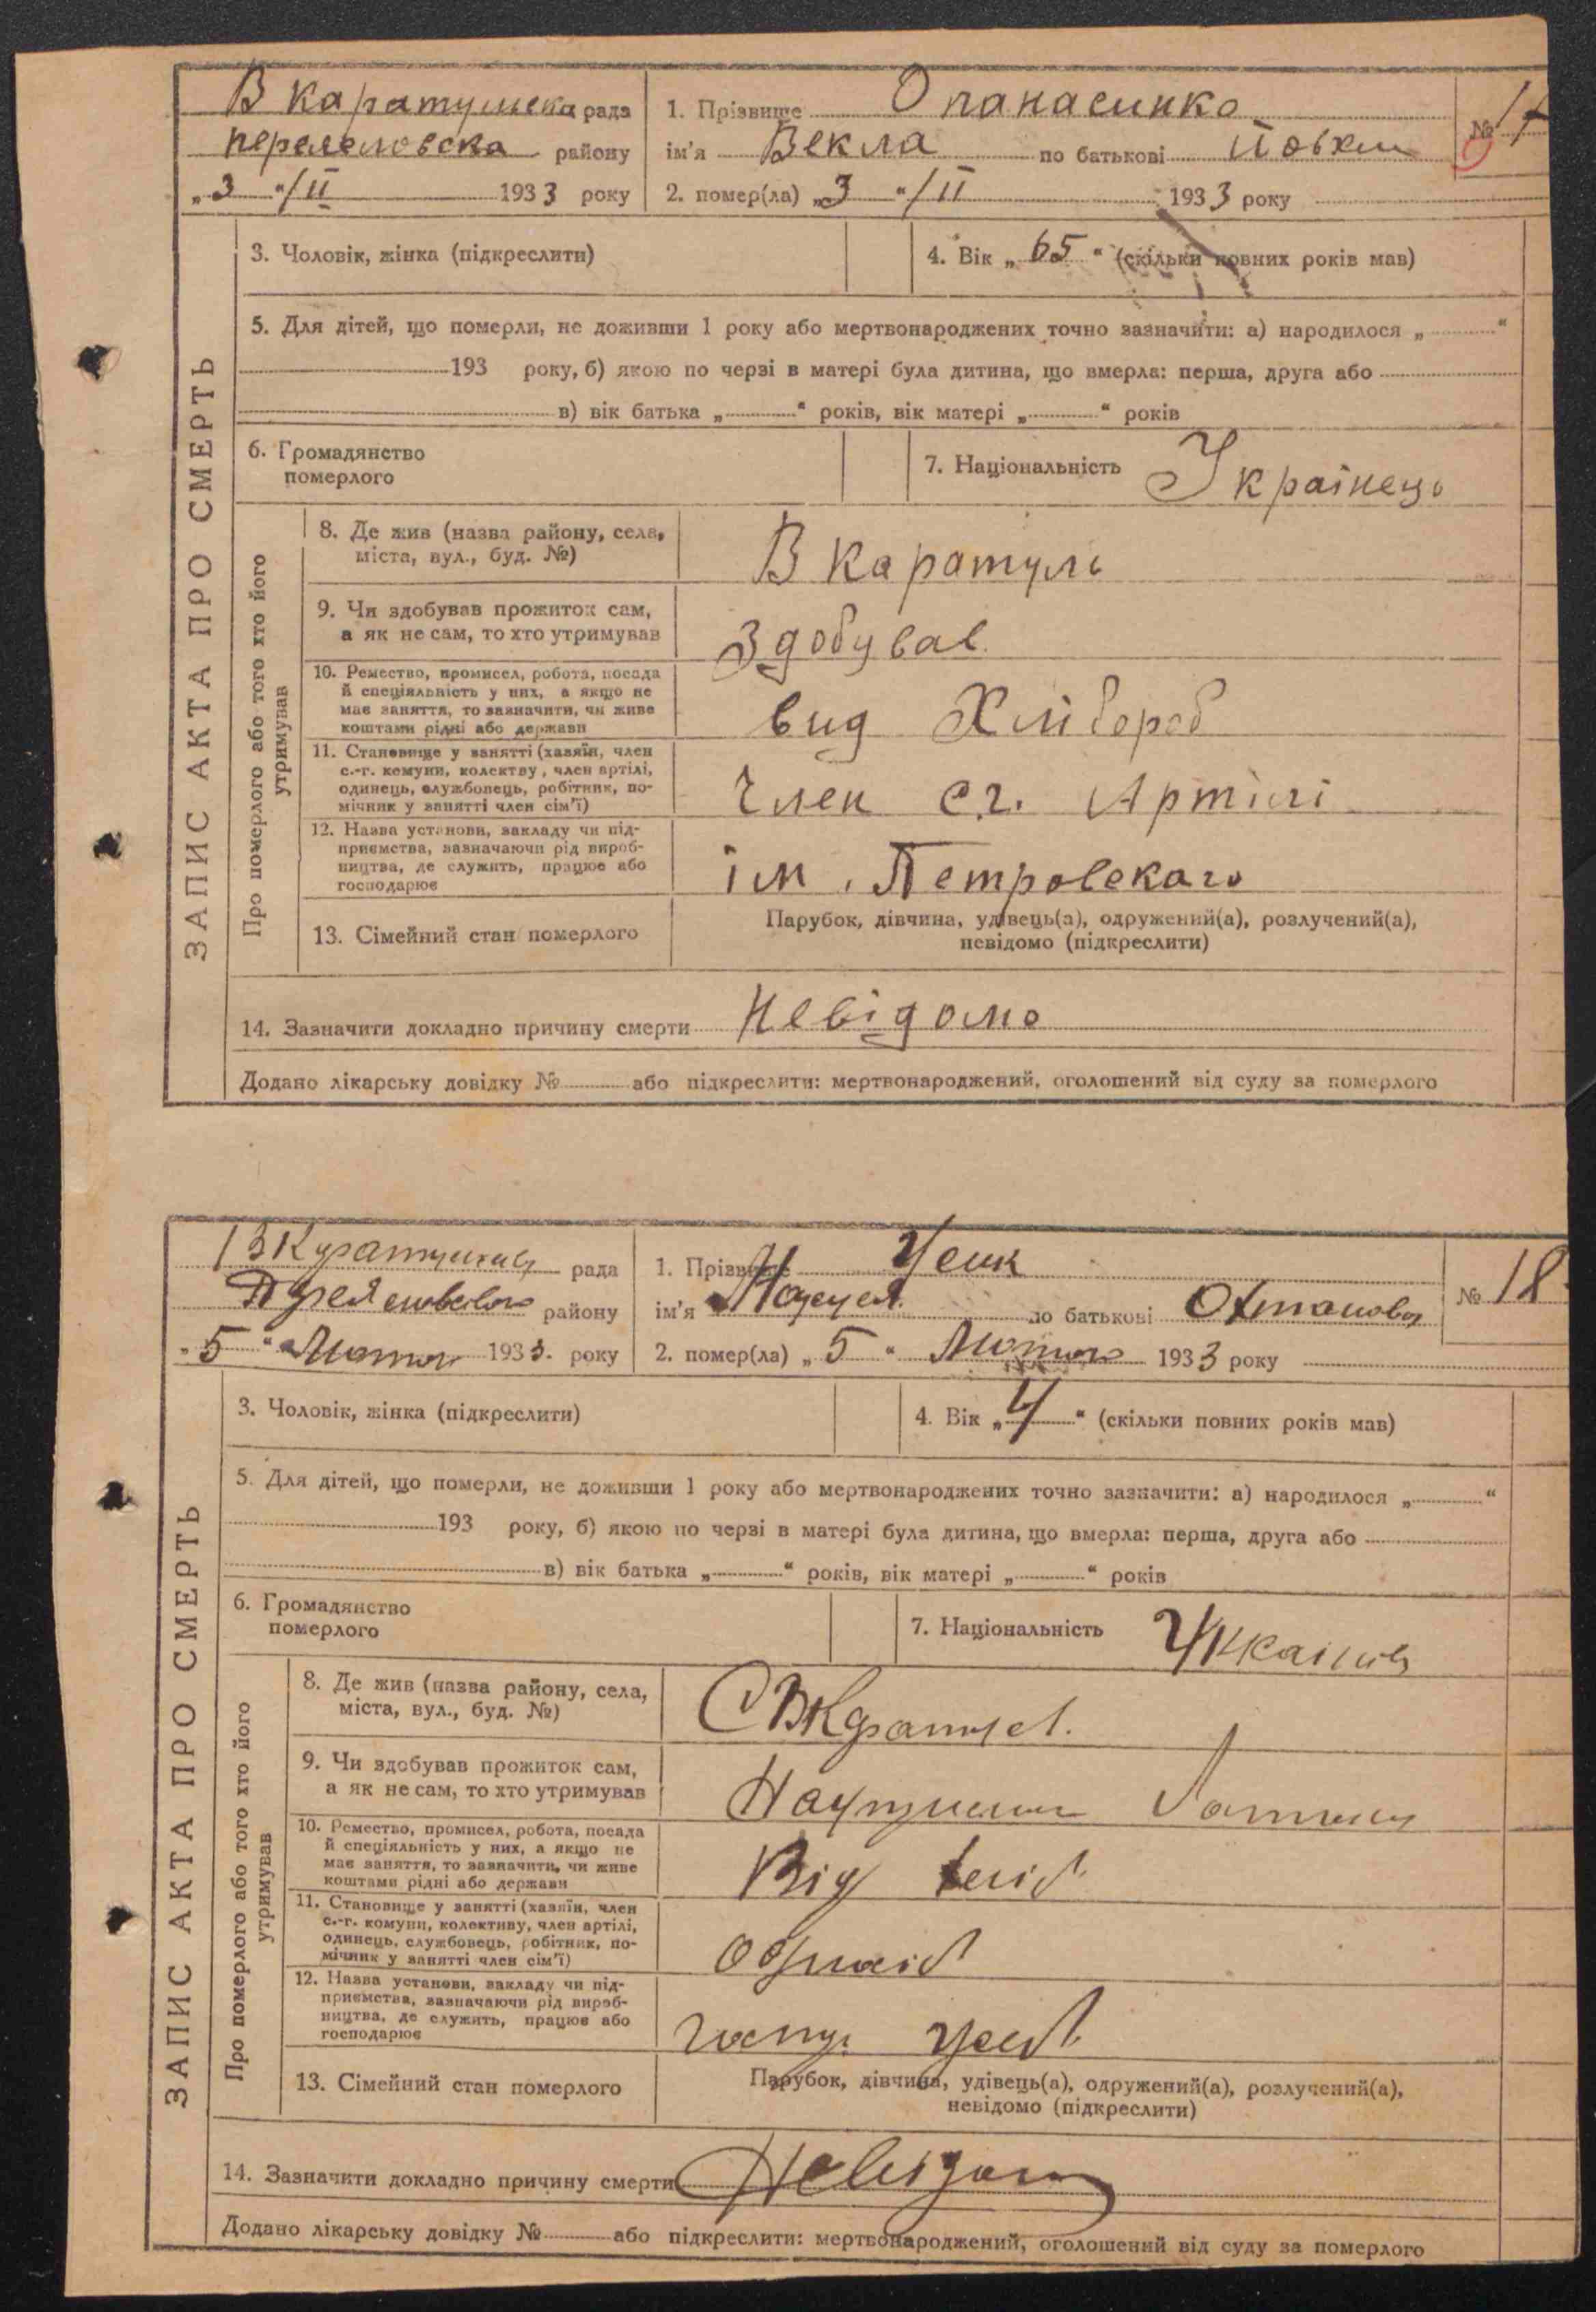 В Каратульська рада
переяславська району
„3“/II 1933 року
1. Прізвище Опанасенко
ім'я Векла по батькові
№ 17
2. помер(ла) „3“/II 1933 року
3. Чоловік, жінка (підкреслити)
4. Вік „65“ (скільки повних років мав)
5. Для дітей, що померли, не доживши 1 року або мертвонароджених точно зазначити: а) народилося „ “
193 року, б) якою по черзі в матері була дитина, що вмерла: перша, друга або
в) вік батька „ “ років, вік матері „ “ років
6. Громадянство
померлого
7. Національність Українець
ЗАПИС АКТА ПРО СМЕРТЬ
Про померлого або того хто його
утримував
8. Де жив (назва району, села,
міста, вул., буд. №)
В Каратуль
9. Чи здобував прожиток сам,
а як не сам, то хто утримував
Здобував
10. Ремество, промисел, робота, посада
й спеціяльність у них, а якщо не
має заняття, то зазначити, чи живе
коштами рідні або держави
вид Хлібороб
11. Становище у занятті (хазяїн, член
с.-г. комуни, колективу, член артілі,
одинець, службовець, робітник, по-
мічник у занятті член сім'ї)
Член с.г. Артілі
12. Назва установи, закладу чи під-
приємства, зазначаючи рід вироб-
ництва, де служить, працює або
господарює
ім. Петровскаго
13. Сімейний стан померлого
Парубок, дівчина, удівець(а), одружений(а), розлучений(а),
невідомо (підкреслити)
14. Зазначити докладно причину смерти Невідомо
Додано лікарську довідку № або підкреслити: мертвонароджений, оголошений від суду за померлого
рада
району
„5“ Лютого 1933. року
1. Прізвище
ім'я по батькові
№ 18
2. помер(ла) „5“ Лютого 1933 року
3. Чоловік, жінка (підкреслити)
4. Вік „4“ (скільки повних років мав)
5. Для дітей, що померли, не доживши 1 року або мертвонароджених точно зазначити: а) народилося „ “
193 року, б) якою по черзі в матері була дитина, що вмерла: перша, друга або
в) вік батька „ “ років, вік матері „ “ років
6. Громадянство
померлого
7. Національність
ЗАПИС АКТА ПРО СМЕРТЬ
Про померлого або того хто його
утримував
8. Де жив (назва району, села,
міста, вул., буд. №)
9. Чи здобував прожиток сам,
а як не сам, то хто утримував
10. Ремество, промисел, робота, посада
й спеціяльність у них, а якщо не
має заняття, то зазначити, чи живе
коштами рідні або держави
Від
11. Становище у занятті (хазяїн, член
с.-г. комуни, колективу, член артілі,
одинець, службовець, робітник, по-
мічник у занятті член сім'ї)
12. Назва установи, закладу чи під-
приємства, зазначаючи рід вироб-
ництва, де служить, працює або
господарює
13. Сімейний стан померлого
Парубок, дівчина, удівець(а), одружений(а), розлучений(а),
невідомо (підкреслити)
14. Зазначити докладно причину смерти Невідомо
Додано лікарську довідку № або підкреслити: мертвонароджений, оголошений від суду за померлого